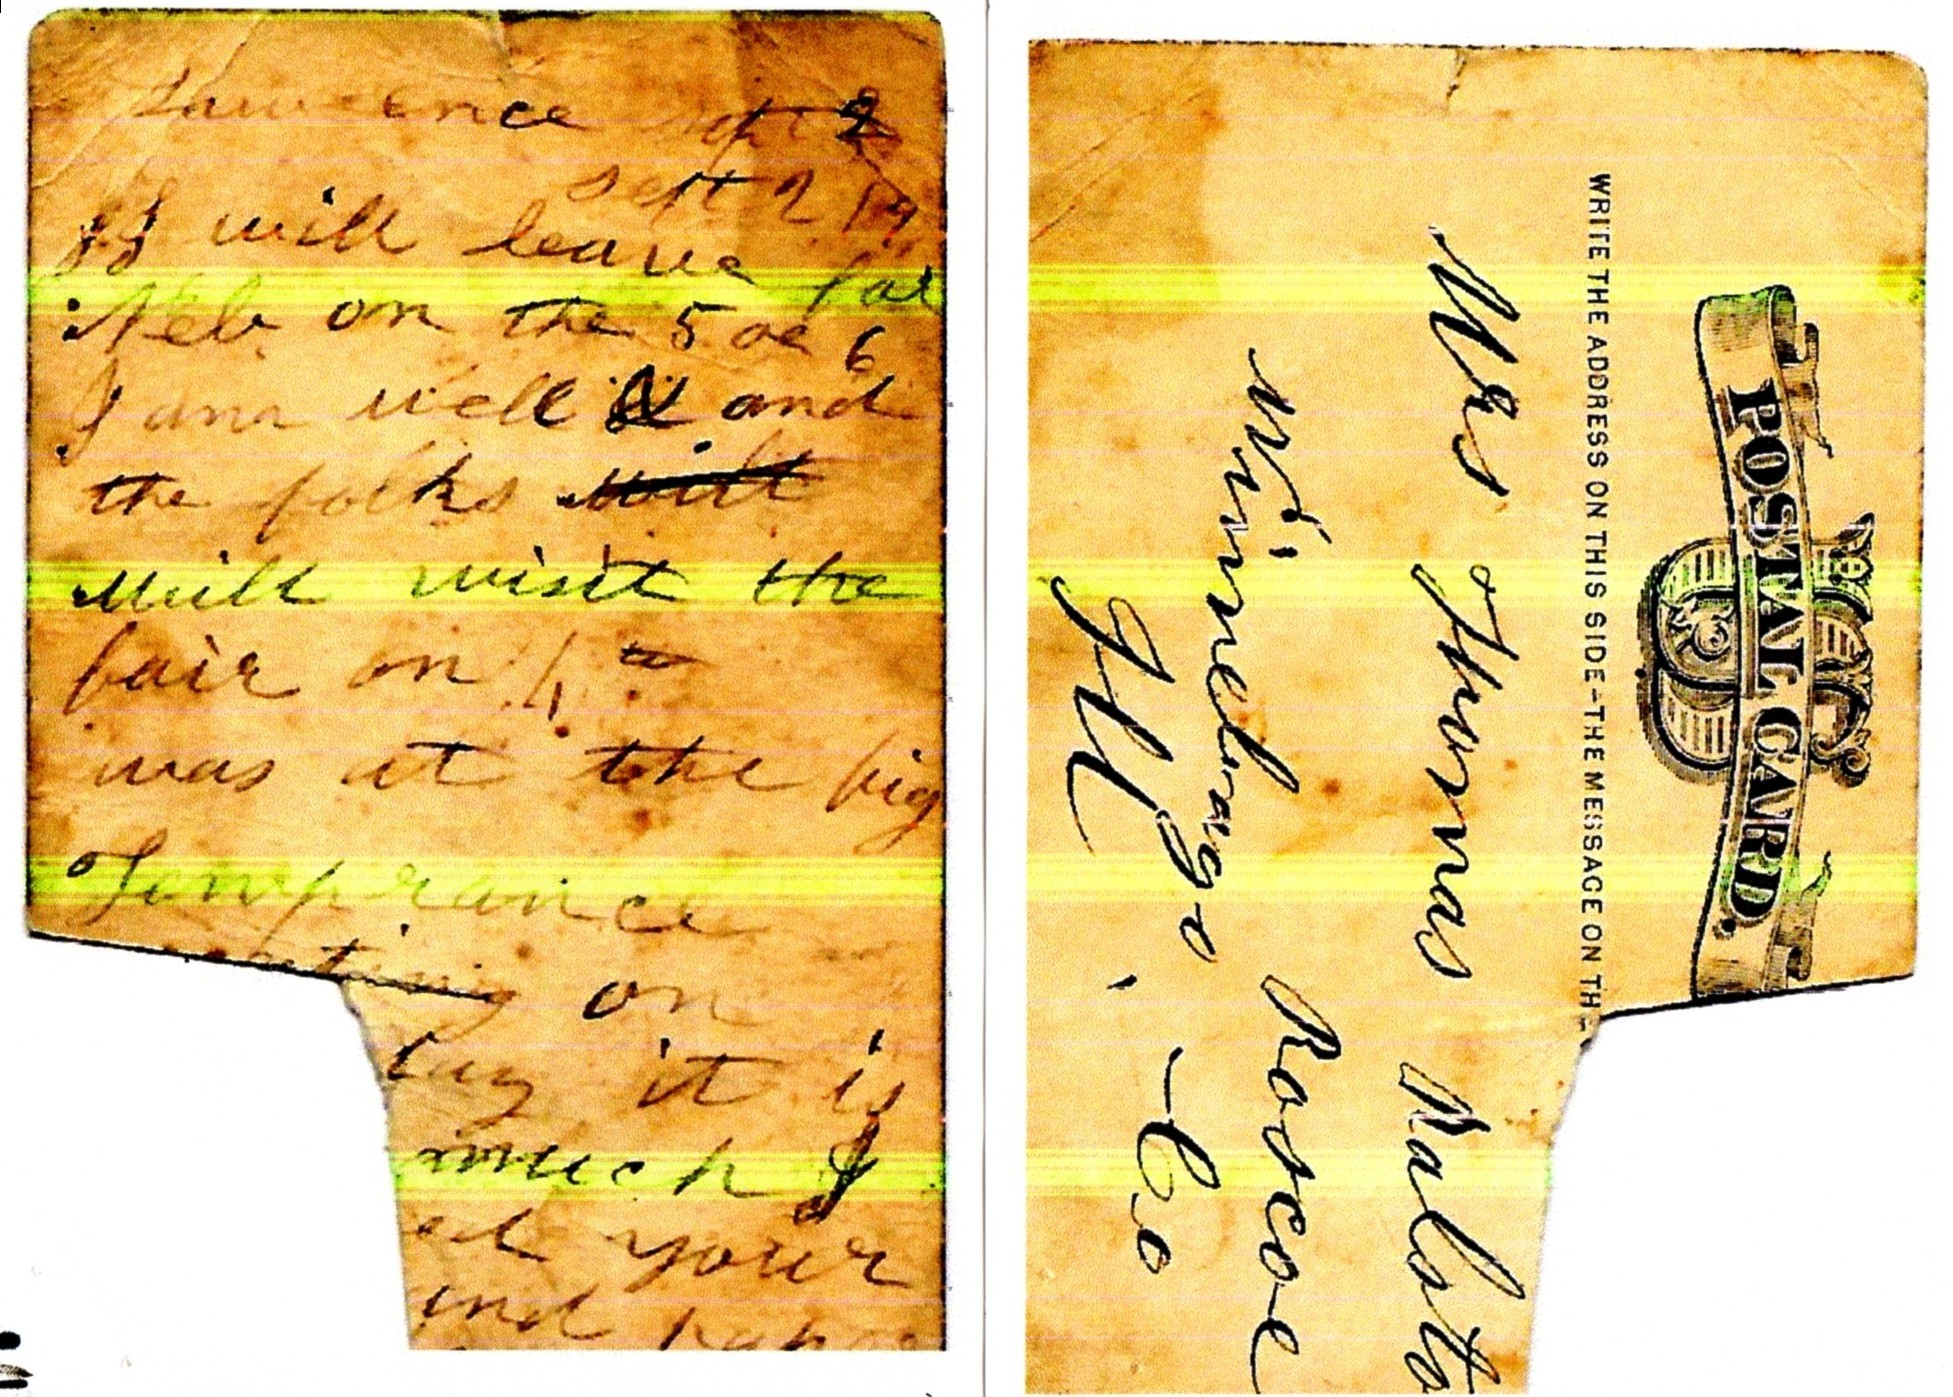 Lawrence sept 2
sept 2 19
I will leave for
Neb on the 5 oe 6
I am well and
the folks will
Will visit the
fair on
was at the big
Temprance
on
day it is
much I
your
and
POSTAL CARD.
WRITE THE ADDRESS ON THIS SIDE-THE MESSAGE ON TH
Mrs Thomas Ralsto
Roscoe
Winnebago. Co
Ill